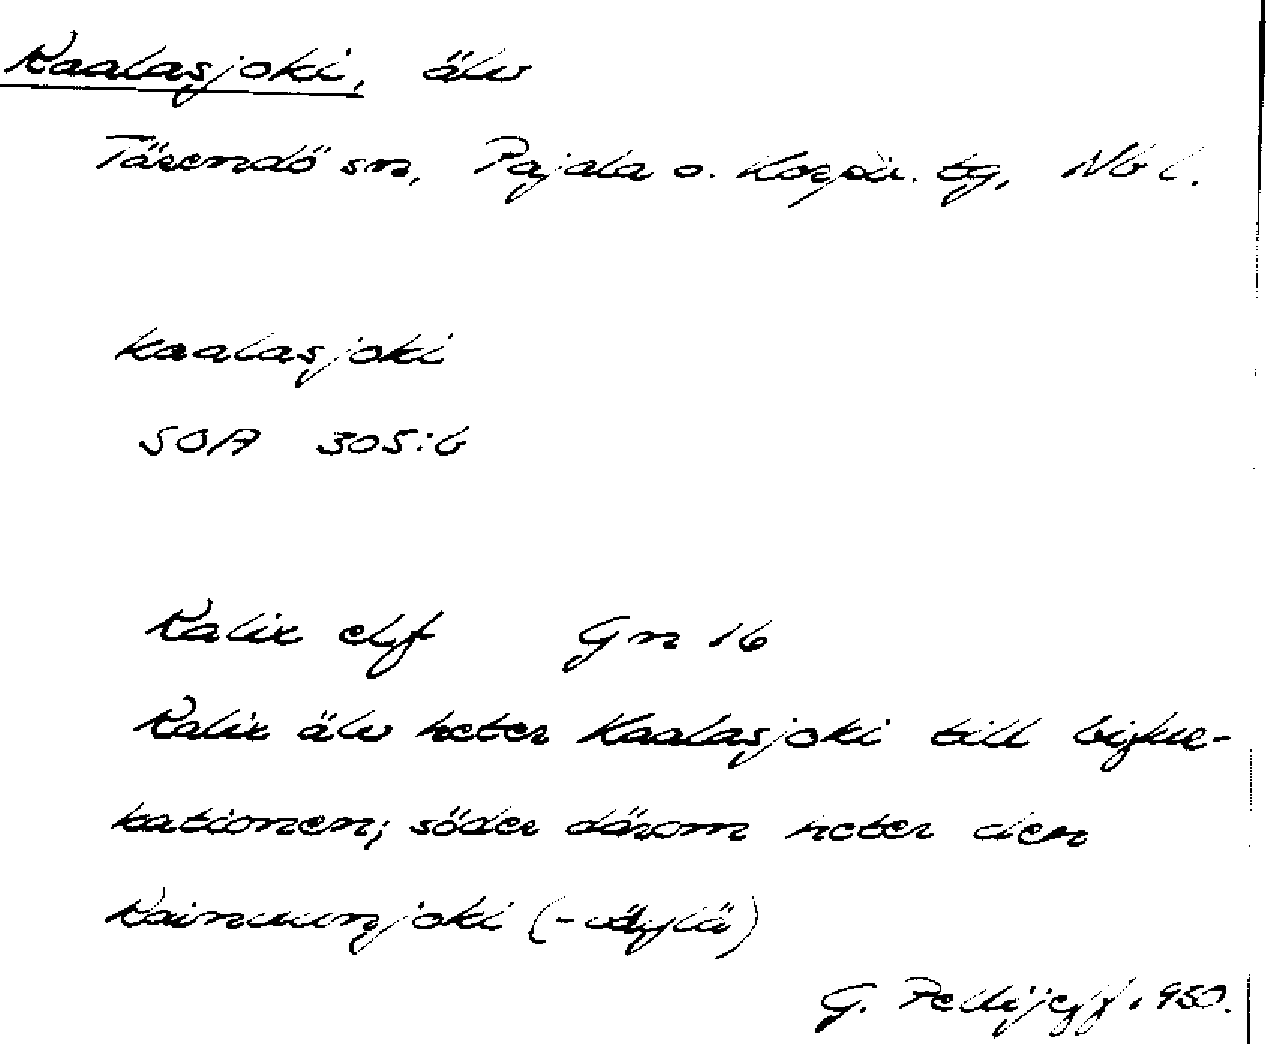 Kaalasjoki, älv
Tärendö sn, Pajala o. Korpil. tg, Nb l.
kaalasjoki
SOA 305:6
Kalix elf Gn 16
Kalix älv heter Kaalasjoki till bifur-
kationen; söder därom heter den
Kainuunjoki (-väylä)
G. Pellijeff 1950.